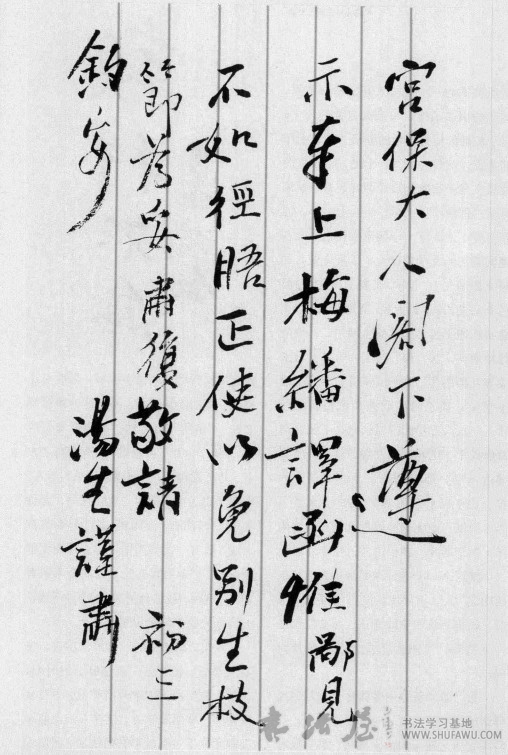 宮保大人閣下遵
示奉上梅繙譯函惟鄙見
不如徑晤正使以免別生枝
節為妥肅復敬請
鈞安
湯生謹肅
初三
书法学习基地
WWW.SHUFAWU.COM